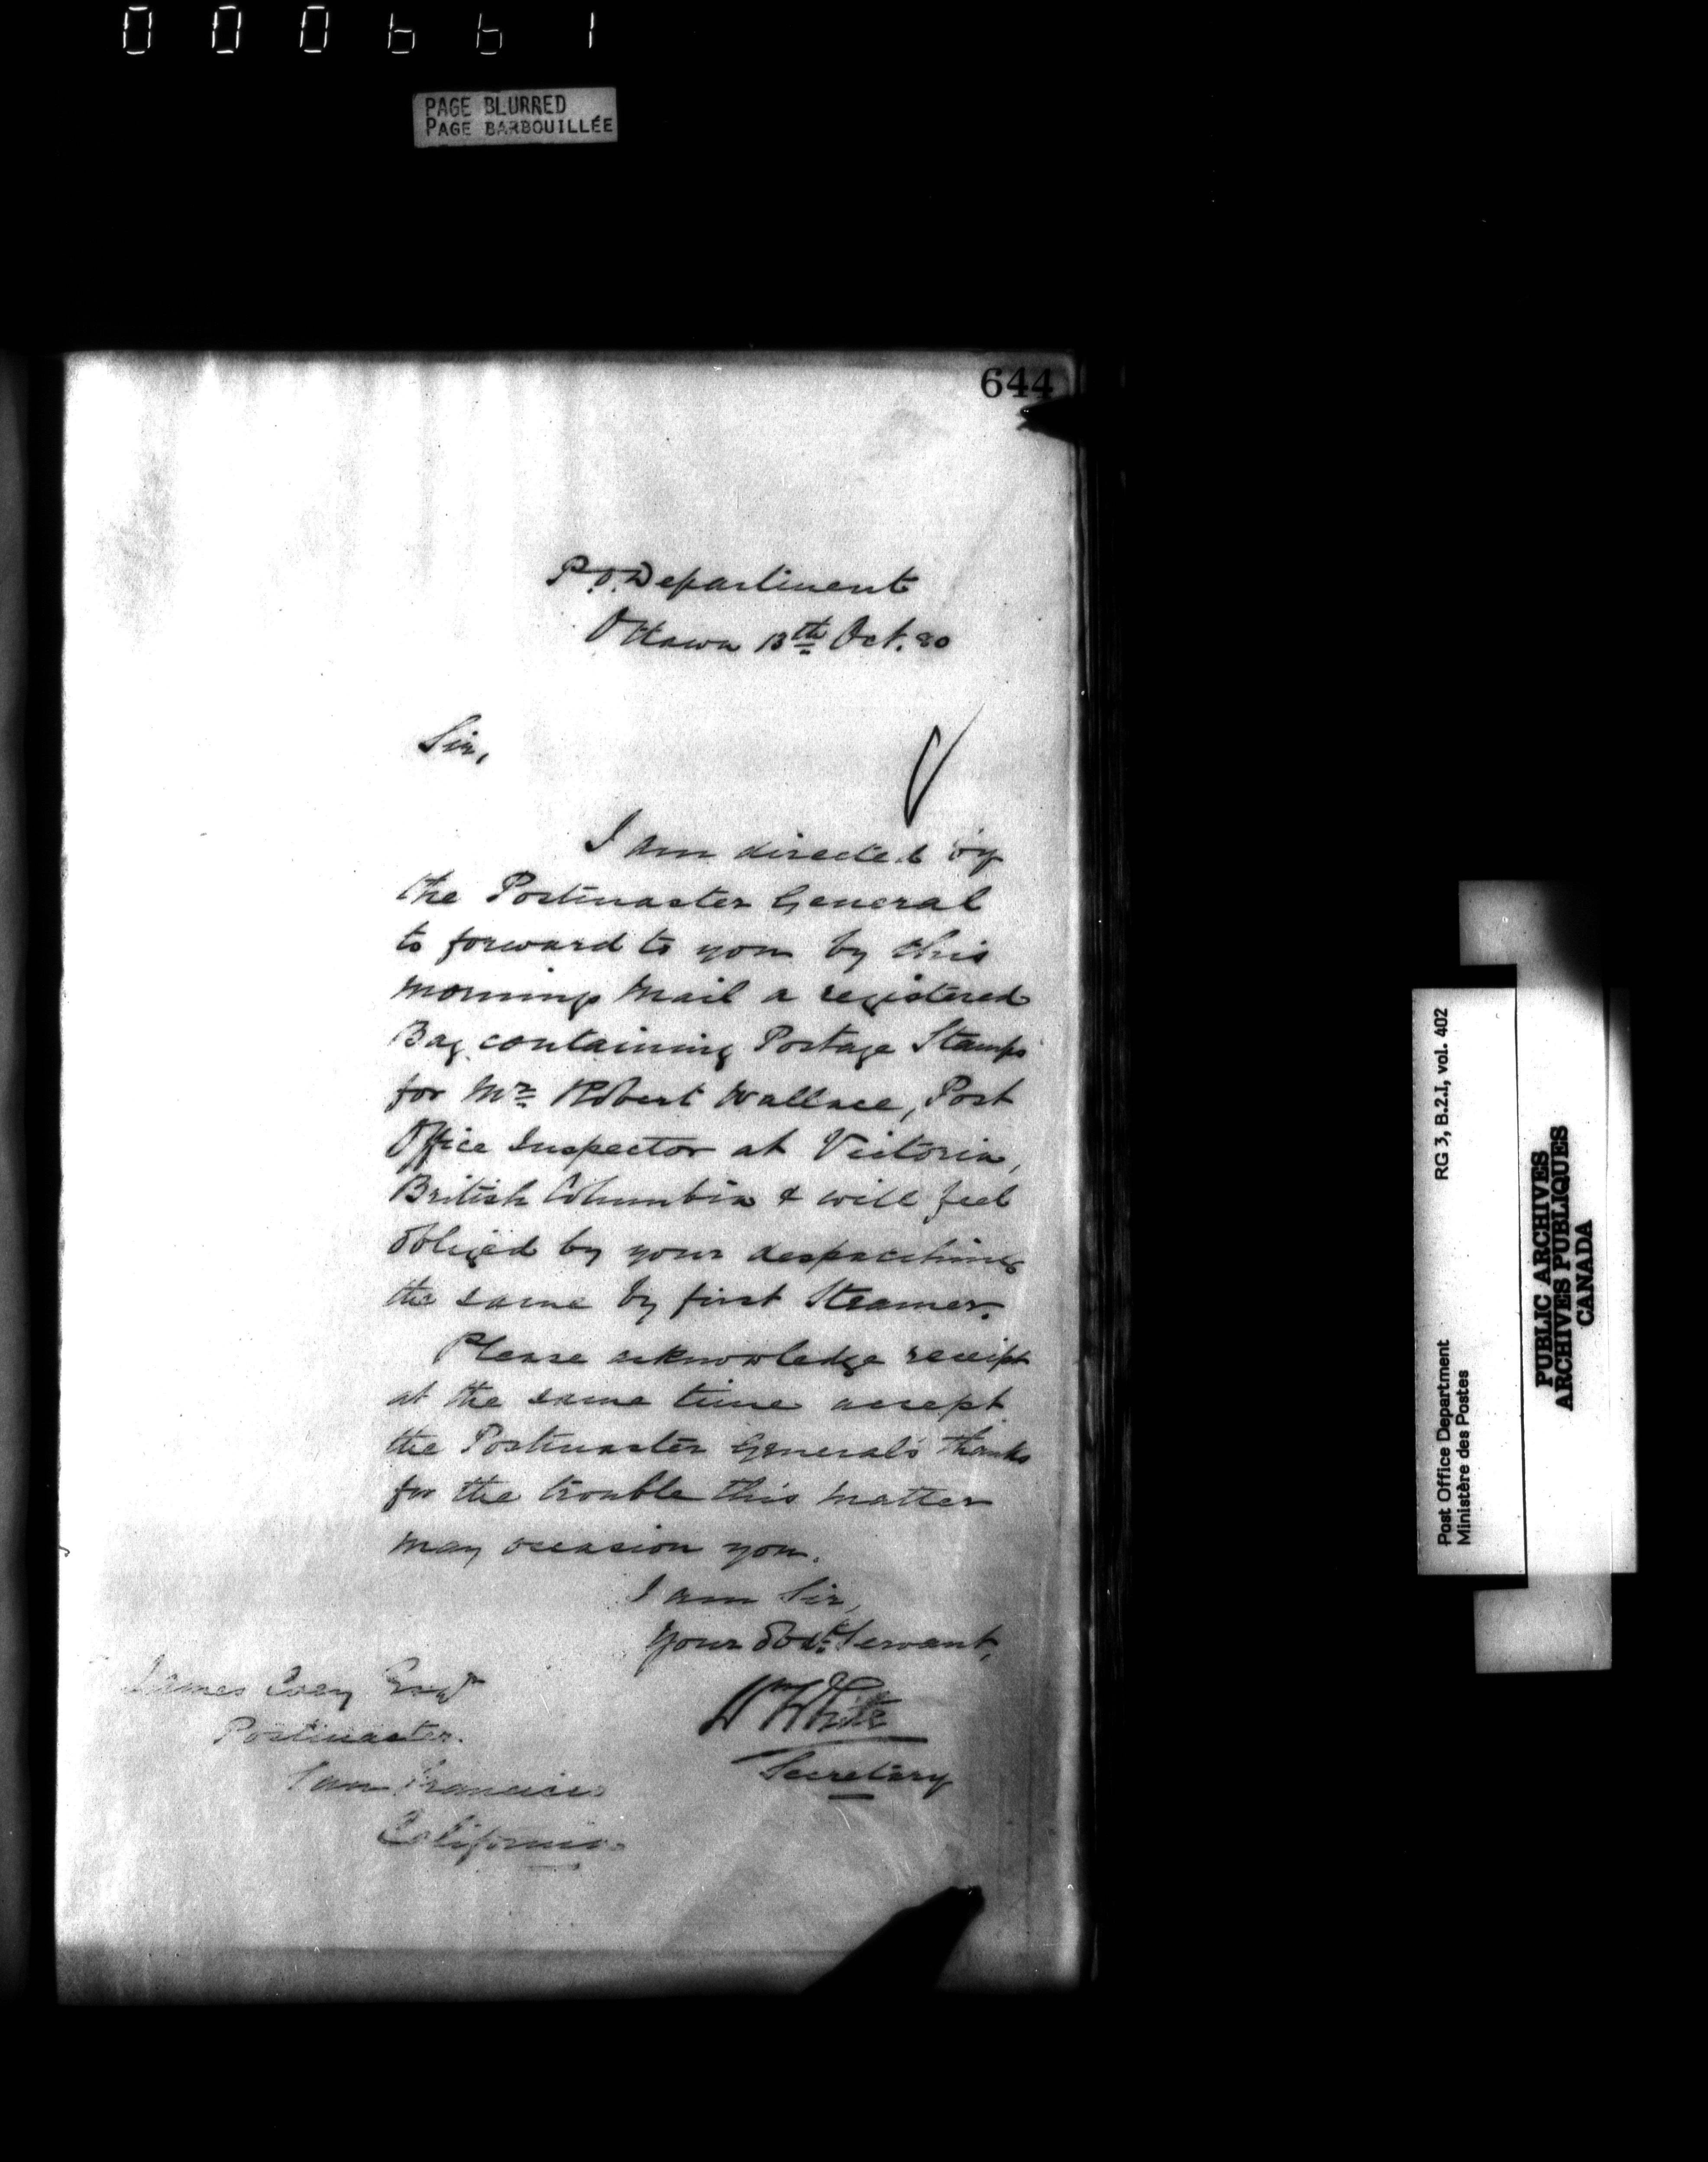 000661
PAGE BLURRED
PAGE BARBOUILLÉE
644
P.O. Department
Ottawa 13th Oct. 80
Sir,
I am directed by
the Postmaster General
to forward to you by this
mornings Mail a registered
Bag containing Postage Stamps
for Mr Robert Wallace, Post
Office Inspector at Victoria,
British Columbia & will feel
obliged by your despatching
the same by first Steamer.
Please acknowledge receipt
at the same time accept
the Postmaster General's thanks
for the trouble this matter
may occasion you.
I am Sir,
Your Obdt Servant,
Wm White
Secretary
James Coey Esqr
Postmaster
San Francisco
California
RG 3, B.2.1, vol. 402
Post Office Department
Ministère des Postes
PUBLIC ARCHIVES
ARCHIVES PUBLIQUES
CANADA